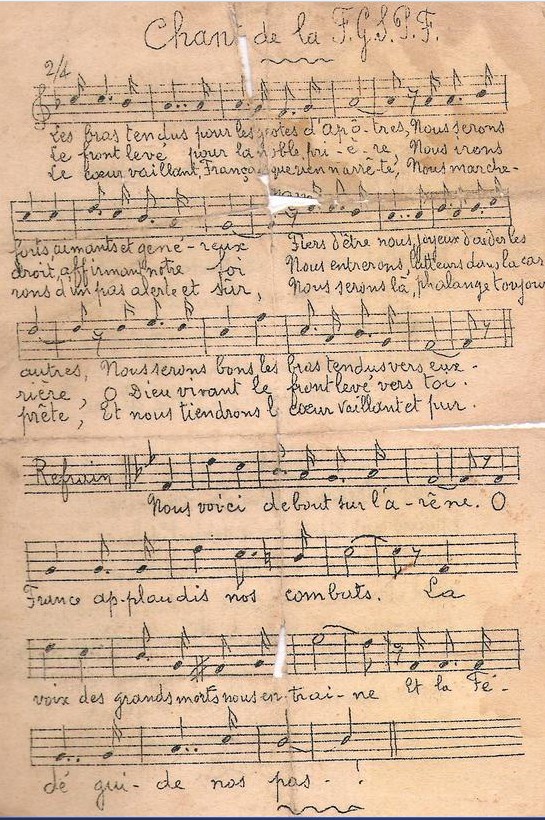 Chant de la F.G.S.P.F.
2/4
Les bras tendus pour les gestes d'apô-tres, Nous serons
Le front levé pour la noble pri-è-re, Nous irons
Le cœur vaillant, Français que rien n'arrê-te, Nous marche-
forts, aimants et géné-reux Fiers d'être nous, joyeux d'aider les
droit, affirmant notre foi Nous entrerons, lutteurs dans la car
rons d'un pas alerte et sûr, Nous serons là, phalange toujou
autres, Nous serons bons les bras tendus vers eux.
rière, O Dieu vivant le front levé vers toi.
prête, Et nous tiendrons l cœur vaillant et pur.
Refrain
Nous voici debout sur l'a-rène. O
France ap-plaudis nos combats. La
voix des grands morts nous en-traî-ne Et la Fé-
dé gui-de nos pas-!